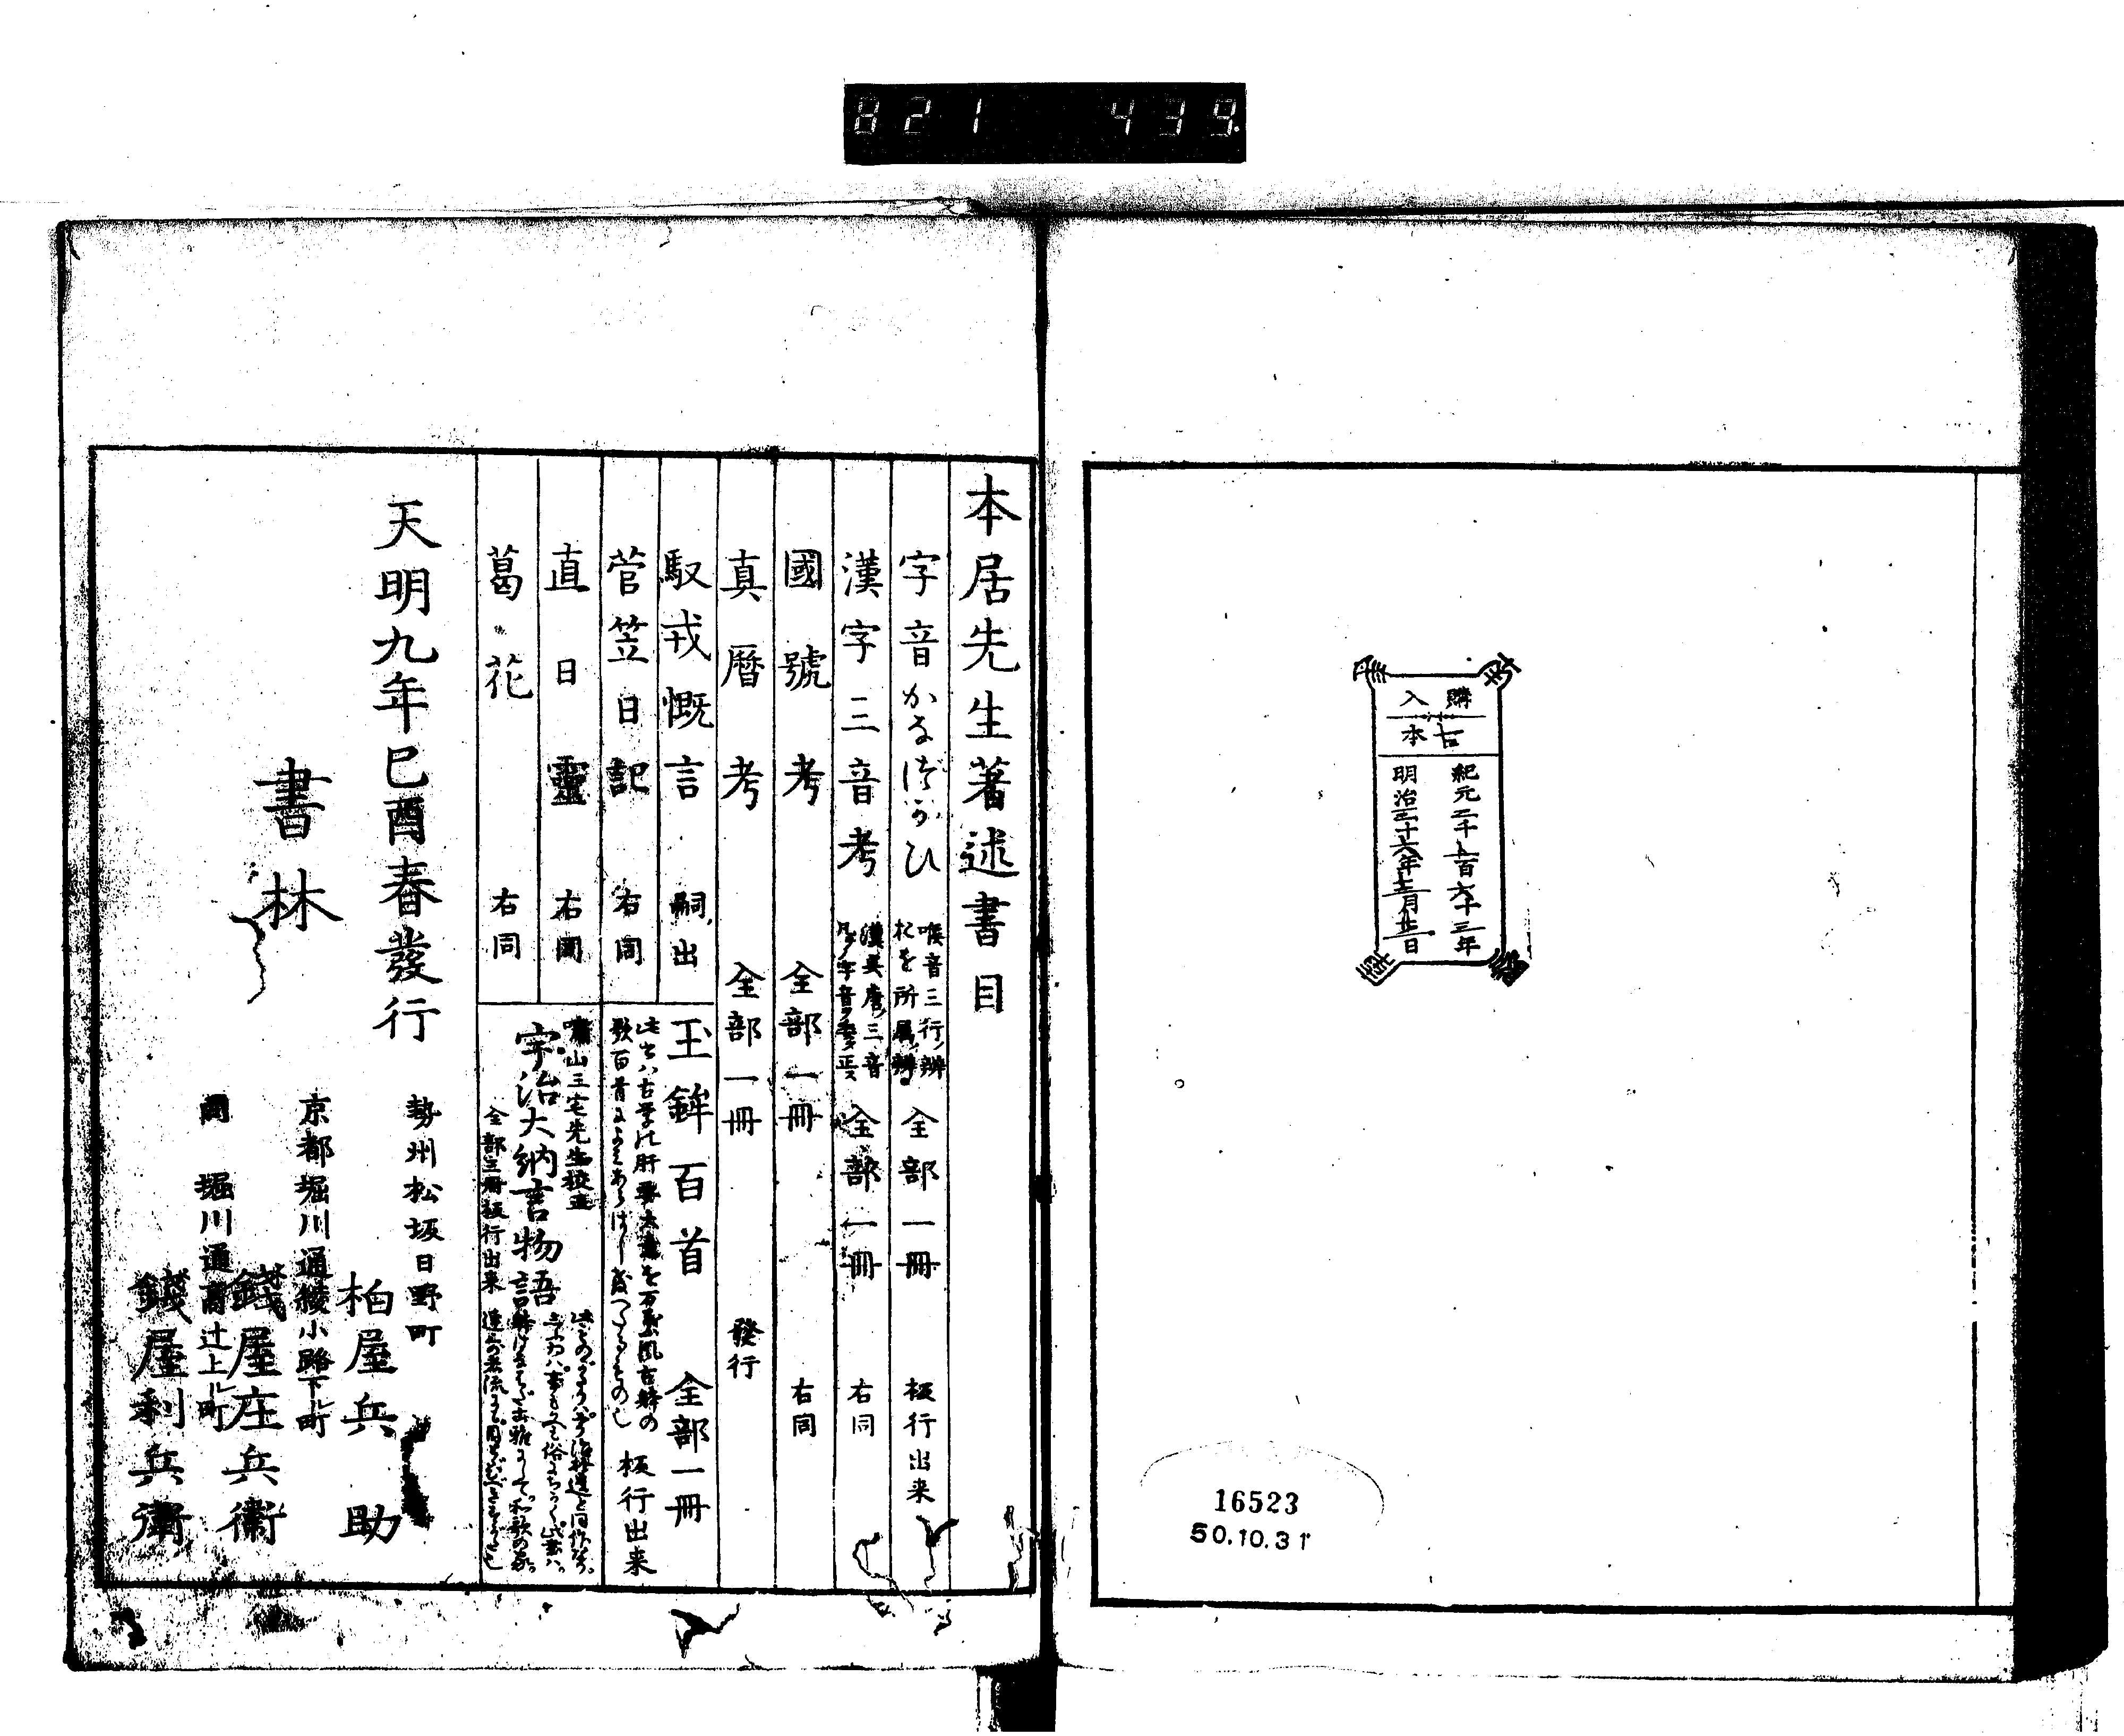 821 439
購入
古本
紀元二千五百六十三年
明治三十六年十二月廿二日
16523
50.10.31
本居先生著述書目
字音かなづかひ 喉音三行ノ辨 おを所属ノ辨 全部一冊 板行出来
漢字三音考 漢呉唐ノ三音 全部一冊 右同
國號考 全部一冊 右同
真暦考 全部一冊 發行
馭戎慨言 嗣出
玉鉾百首 全部一冊
菅笠日記 右同
板行出来
直日靈 右同
葛花 右同
嘯山三宅先生校正
宇治大納言物語
全部三冊板行出来
天明九年己酉春發行
書林
勢州松坂日野町
柏屋兵助
京都堀川通綾小路下ル町
錢屋庄兵衛
同 堀川通高辻上ル町
錢屋利兵衛